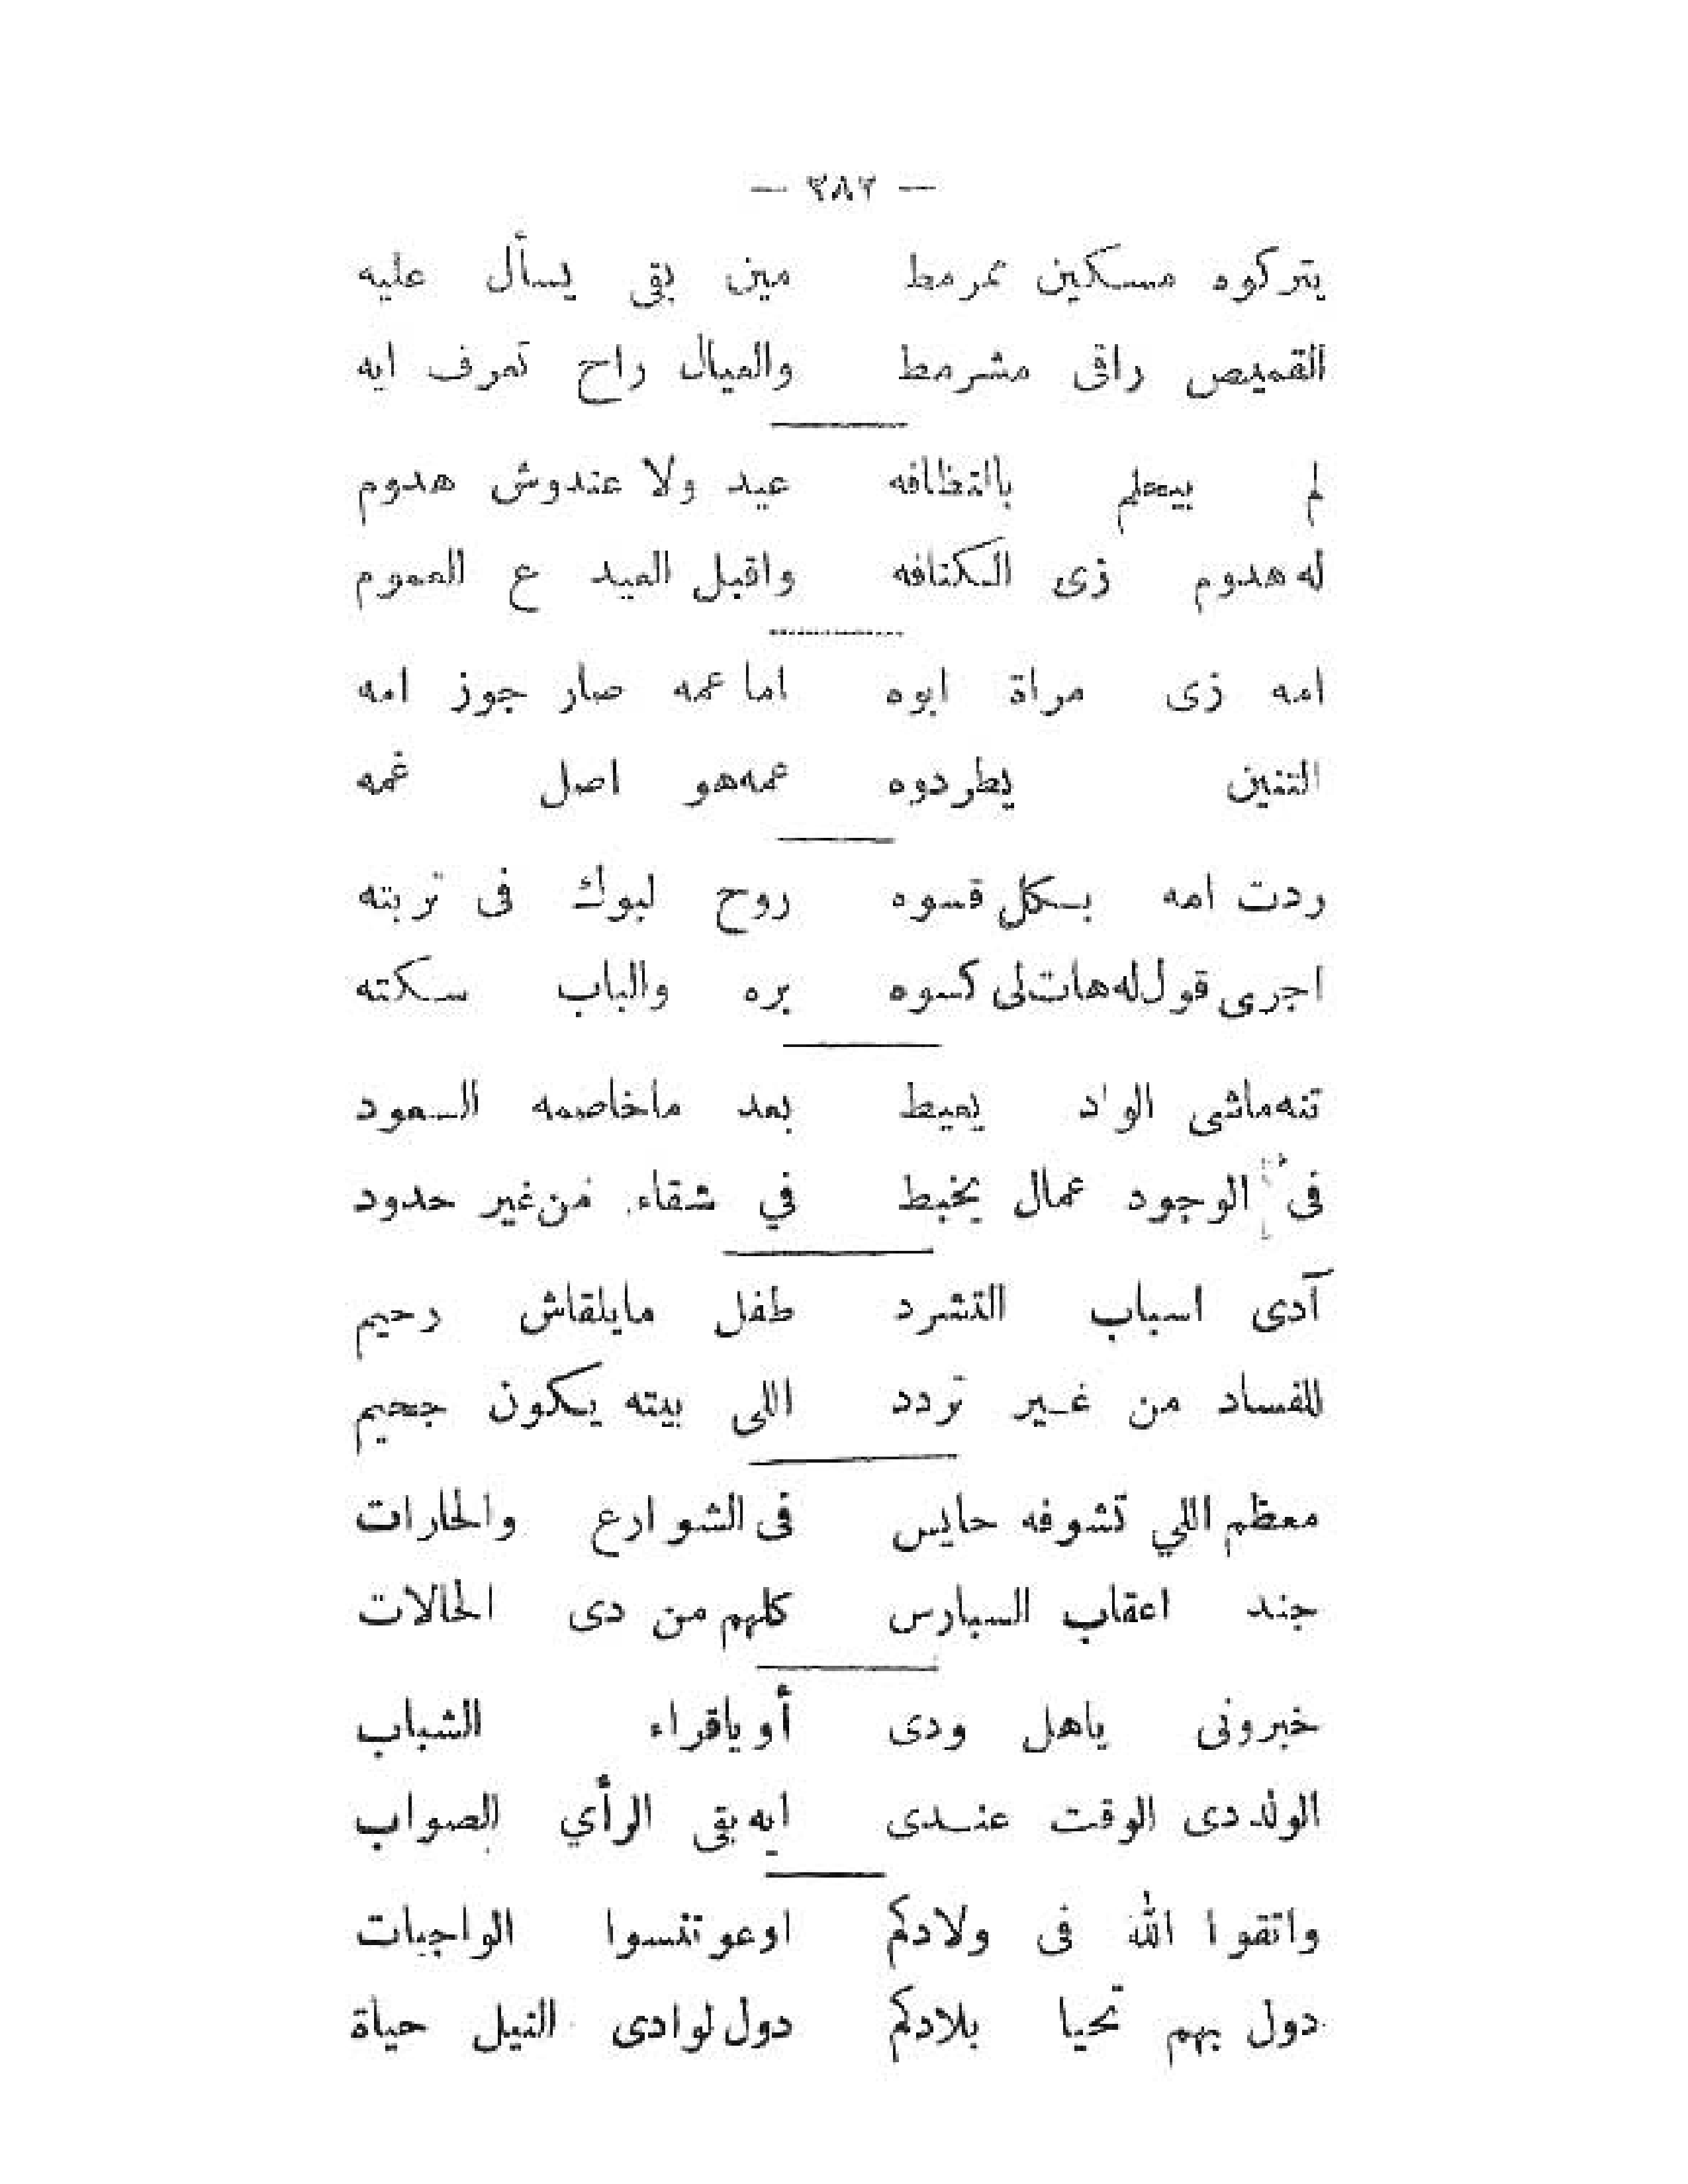 — ٢٨٢ —
يتركوه مسكين ممرمط مين بقى يسأل عليه
القميص راقى مشرمط والعيال راح تعرف ايه
لم بيعلم بالنظافه عيد ولا عندوش هدوم
له هدوم زى الكنافه واقبل العيد ع العموم
امه زى مراة ابوه اما عمه صار جوز امه
التنين يطردوه عمه هو اصل غمه
ردت امه بكل قسوه روح لبوك فى تربته
اجرى قول له هات لى كسوه بره والباب سكته
تنه ماشى الواد يعيط بعد ماخاصمه السعود
فى الوجود عمال يخبط في شقاء من غير حدود
آدى اسباب التشرد طفل مايلقاش رحيم
للفساد من غير تردد اللى بيته يكون جحيم
معظم اللي تشوفه حايس فى الشوارع والحارات
جند اعقاب السبارس كلهم من دى الحالات
خبرونى ياهل ودى أو ياقراء الشباب
الولد دى الوقت عندى ايه بقى الرأي الصواب
واتقوا الله فى ولادكم اوعو تنسوا الواجبات
دول بهم تحيا بلادكم دول لوادى النيل حياة